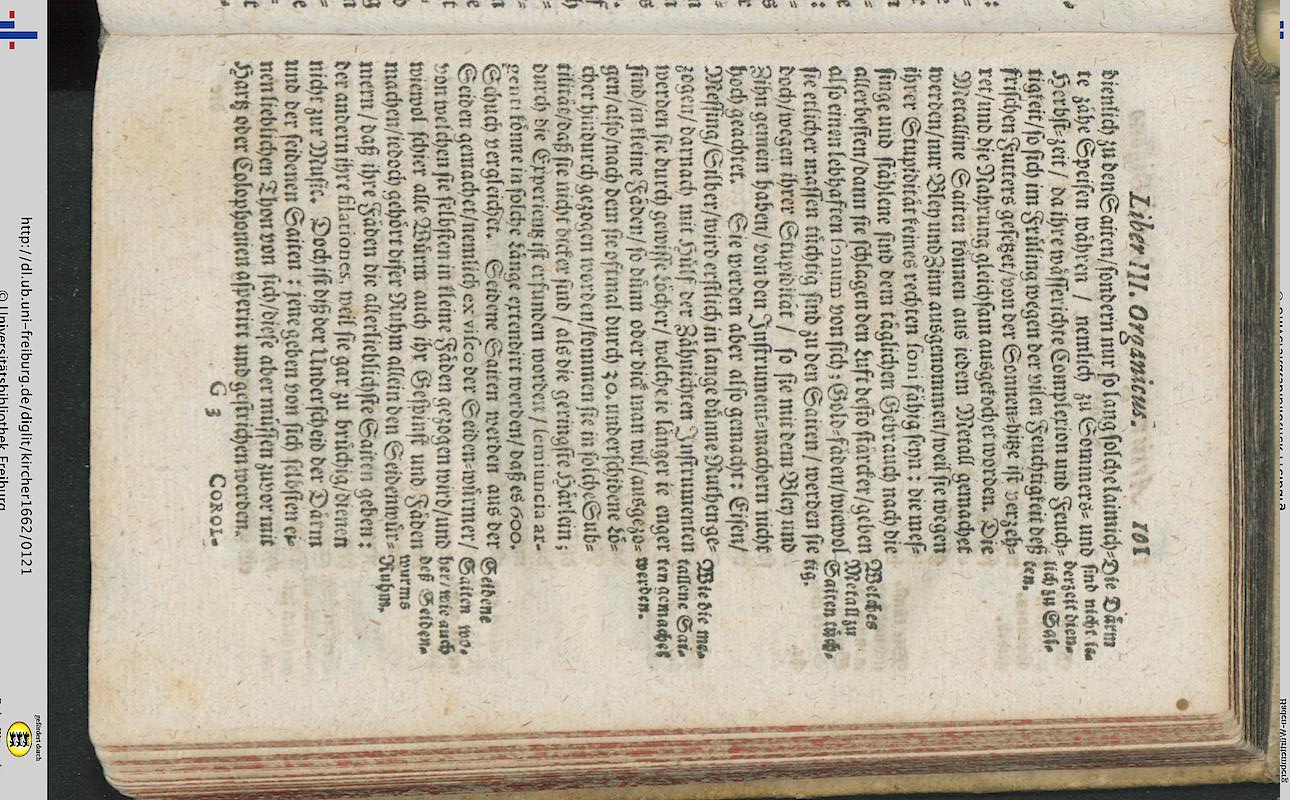 Liber III. Organicus. 101
dienlich zu den Saiten/sondern nur so lang solche laimich-
te zähe Speisen währen / nemlich zu Sommers- und
Herbst-zeit / da ihre wässerichte Complexion und Feuch-
tigkeit/ so sich im Früling wegen der vilen Feuchtigkeit deß
frischen Futters gesetzet/von der Sonnen-hitze ist verzeh-
ret/und die Nahrung gleichsam ausgekochet worden. Die
Metalline Saiten können aus jedem Metall gemachet
werden/nur Bley und Zinn ausgenommen/weil sie wegen
ihrer Stupidität keines rechten soni fähig seyn: die mes-
singe und stählene sind dem täglichen Gebrauch nach die
allerbesten/dann sie schlagen den Luft desto stärcker/geben
also einen lebhaften sonum von sich; Gold-fäden/wiewol
sie etlicher massen tüchtig sind zu den Saiten/ werden sie
doch/wegen ihrer Stupidität / so sie mit dem Bley und
Zihn gemein haben/von den Instrument-machern nicht
hoch geachtet. Sie werden aber also gemacht: Eisen/
Messing/Silber/wird erstlich in lange dünne Ruthen ge-
zogen/ darnach mit Hülf der Zähnichten Instrumenten
werden sie durch gewisse Löcher/ welche ie länger ie enger
sind/in kleine Fäden/ so dünn oder dick man wil/ausgezo-
gen/also/nach dem sie oftmal durch 30. underschidene Lö-
cher hindurch gezogen worden/kommen sie in solche Sub-
tilität/daß sie nicht dicker sind / als die geringste Härlein;
durch die Experientz ist erfunden worden/ 1 uncia ar-
genti könne in solche Länge extendirt werden/ daß es 600.
Schuch vergleichet. Seidene Saiten werden aus der
Seiden gemachet/nemlich ex visco der Seiden-würmer/
von welchen sie selbsten in kleine Fäden gezogen wird/und
wiewol schier alle Würm auch ihr Gespinst und Fäden
machen/iedoch gehört diser Ruhm allein den Seidenwür-
mern/ daß ihre Fäden die allerlieblichste Saiten geben:
der andern ihre filationes, weil sie gar zu brüchig/dienen
nicht zur Music. Doch ist diß der Underscheid der Därm
und der seidenen Saiten: jene geben von sich selbsten ei-
nen lieblichen Thon von sich/diese aber müssen zuvor mit
Hartz oder Colophonen asperirt und gestrichen werden.
G 3 COROL-
Die Därm
sind nicht
derzeit dien-
lich zu Sai-
ten.
Welches
Metall zu
Saiten tüch-
tig.
Wie die me-
tallene Sai-
ten gemachet
werden.
Seidene
Saiten wo-
her/wie auch
deß Seiden-
wurms
Ruhm.
http://dl.ub.uni-freiburg.de/diglit/kircher1662/0121
© Universitätsbibliothek Freiburg
gefördert durch